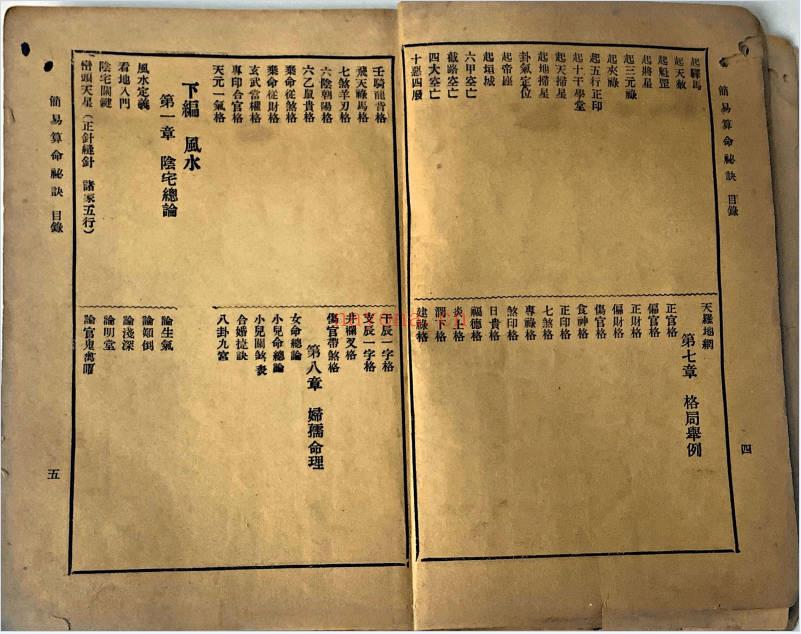 簡易算命祕訣 目錄
四
起驛馬
起天赦
起魁罡
起將星
起三元祿
起夾祿
起五行正印
起十干學堂
起天掃星
起地掃星
卦氣定位
起帝座
起垣城
六甲空亡
截路空亡
四大空亡
十惡四廢
天羅地網
第七章 格局舉例
正官格
偏官格
正財格
偏財格
傷官格
食神格
正印格
七煞格
專祿格
煞印格
日貴格
福德格
炎上格
潤下格
建祿格
壬騎龍背格
飛天祿馬格
七煞羊刃格
六陰朝陽格
六乙鼠貴格
棄命從煞格
棄命從財格
玄武當權格
專印合官格
天元一氣格
干辰一字格
支辰一字格
井欄叉格
傷官帶煞格
第八章 婦孺命理
女命總論
小兒命總論
小兒關煞表
合婚捷訣
八卦九宮
下編 風水
第一章 陰宅總論
風水定義
看地入門
陰宅關鍵
巒頭天星(正針縫針 諸家五行)
論生氣
論顛倒
論淺深
論明堂
論官鬼禽曜
簡易算命祕訣 目錄
五